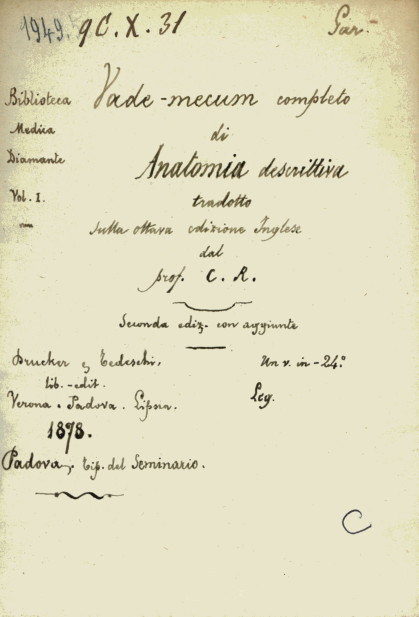 1949. 9C. X. 31
Gar-
Biblioteca
Medica
Diamante
Vol. I.
Vade-mecum completo
di
Anatomia descrittiva
tradotto
sulla ottava edizione Inglese
dal
prof. C. R.
Seconda ediz. con aggiunte
Drucker e Tedeschi,
lib. - edit.
Verona. Padova. Lipsia.
1878.
Padova, Tip. del Seminario.
Un v. in - 24.°
Leg.
C